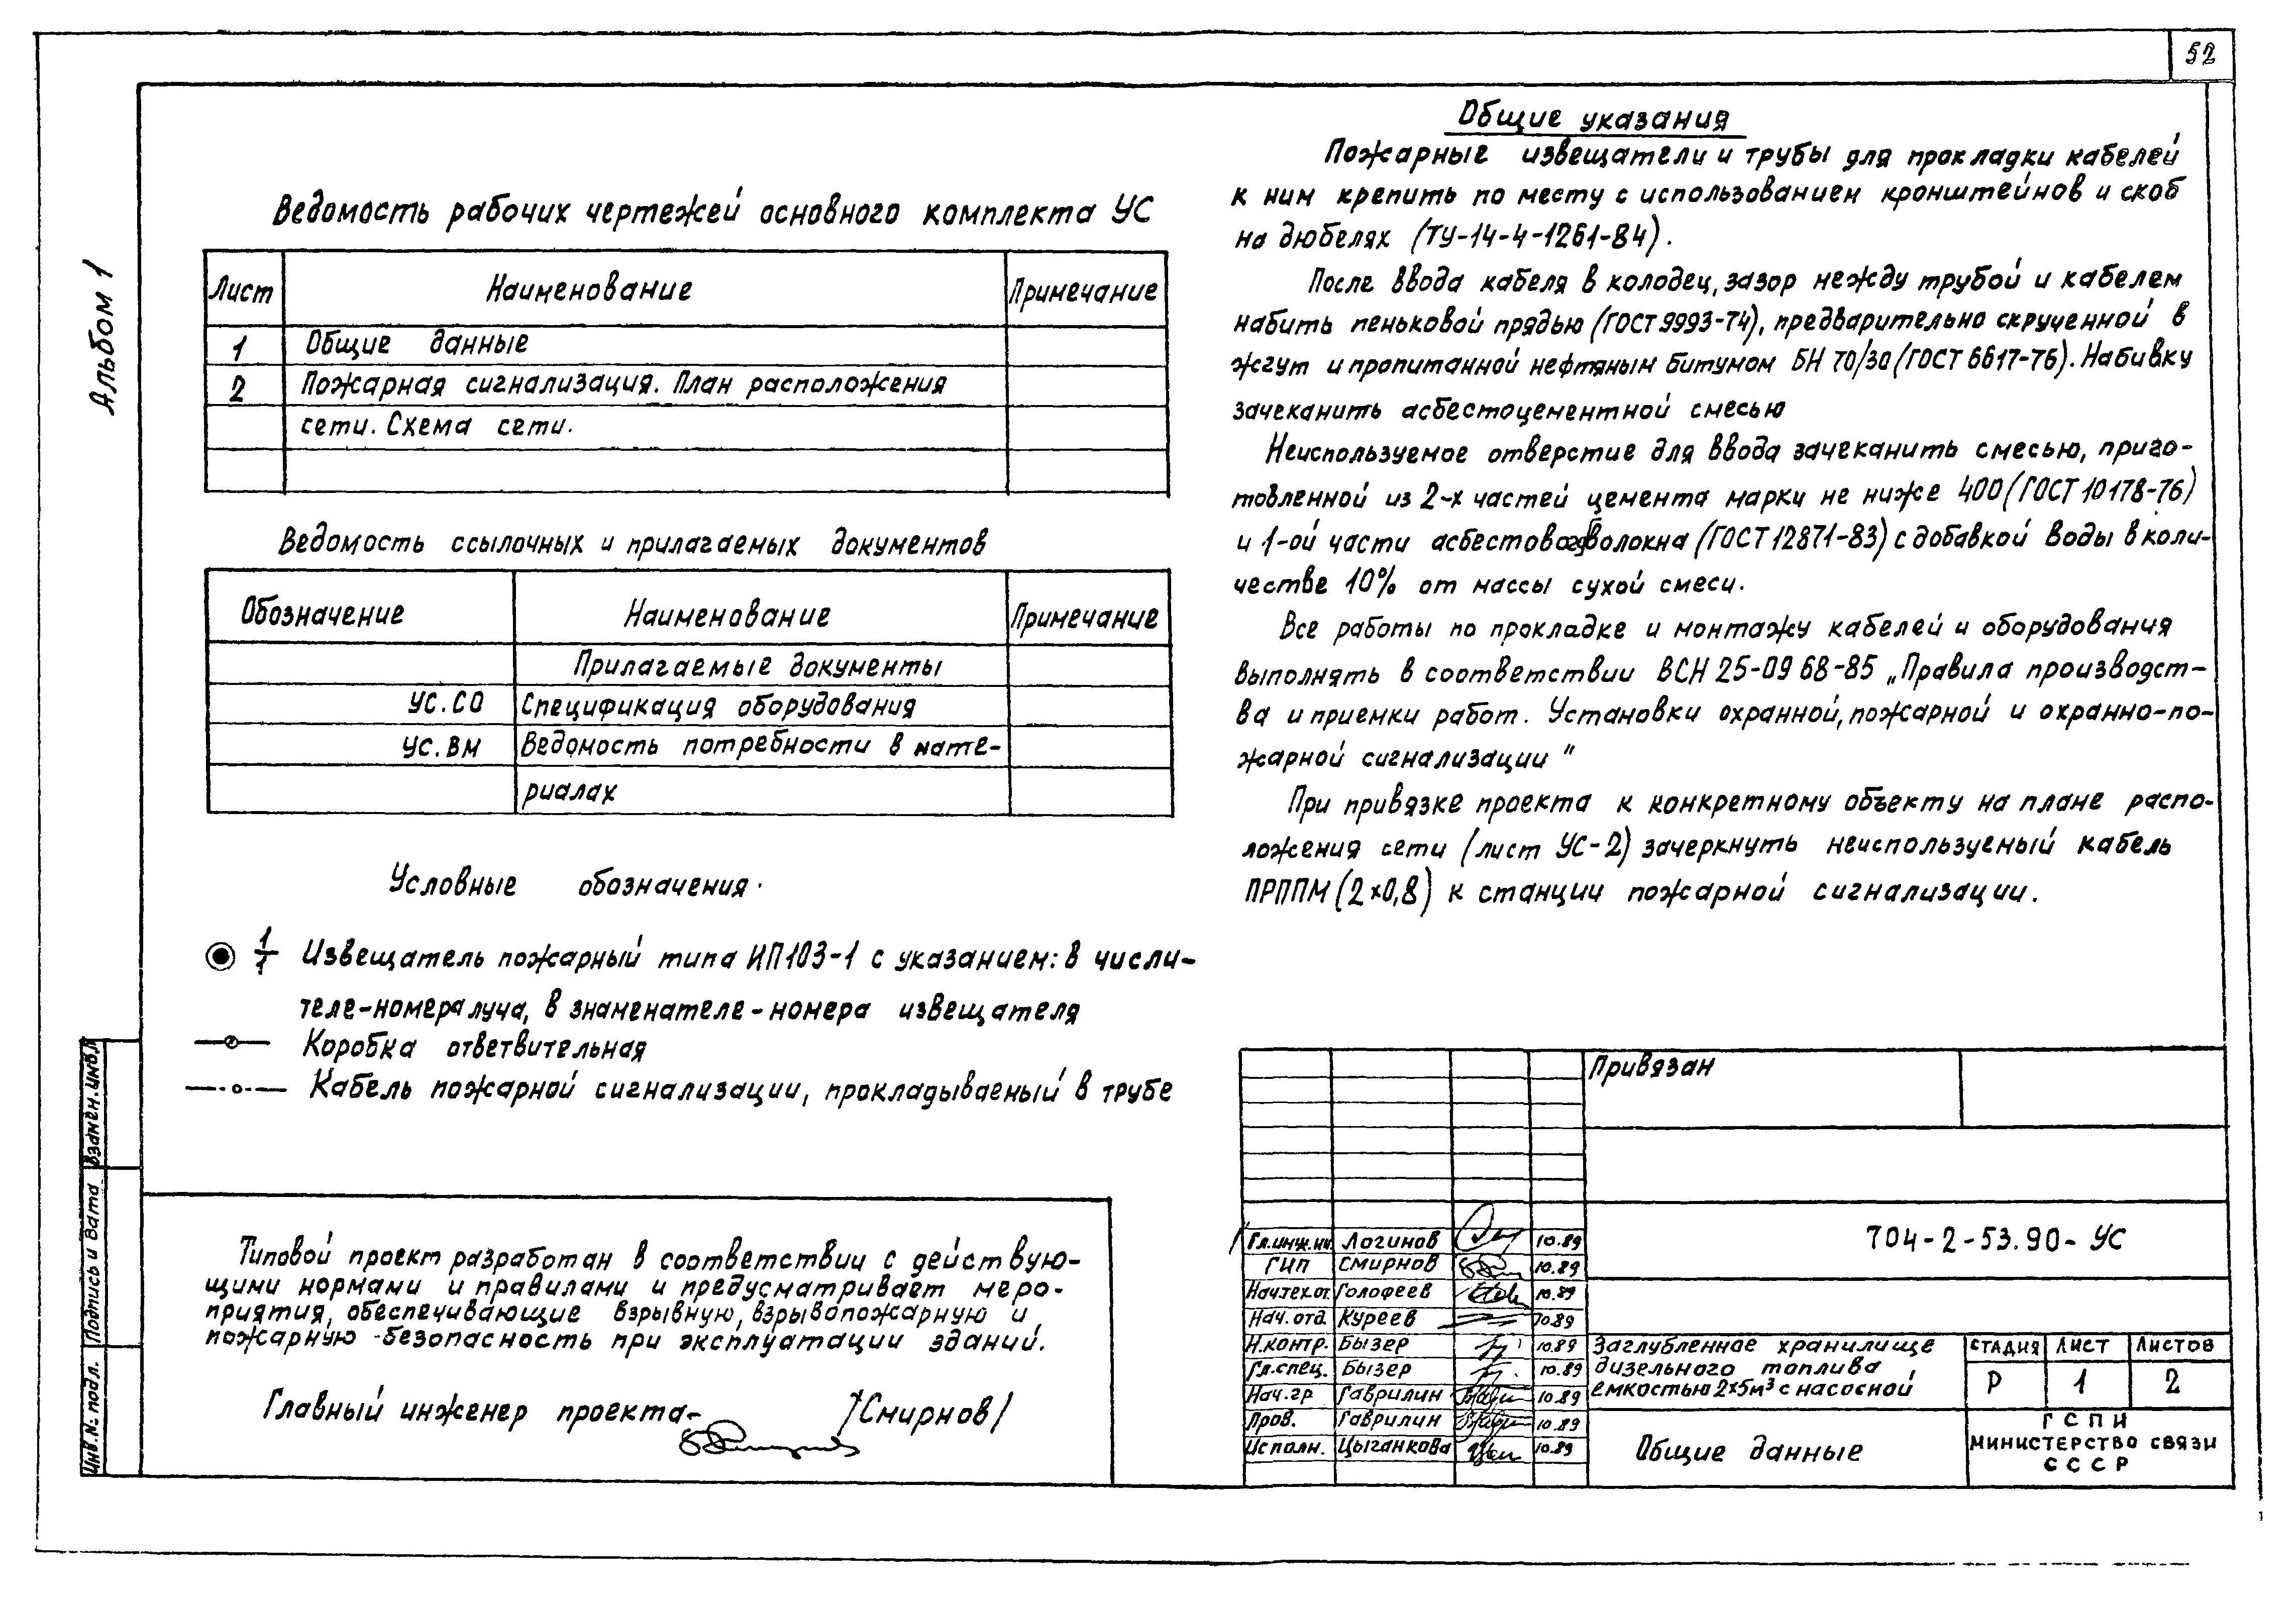 52
Альбом 1
Ведомость рабочих чертежей основного комплекта УС
Лист Наименование Примечание
1 Общие данные
2 Пожарная сигнализация. План расположения
сети. Схема сети.
Ведомость ссылочных и прилагаемых документов
Обозначение Наименование Примечание
Прилагаемые документы
УС.СО Спецификация оборудования
УС.ВМ Ведомость потребности в мате-
риалах
Условные обозначения.
1/1 Извещатель пожарный типа ИП103-1 с указанием: в числи-
теле-номера луча, в знаменателе-номера извещателя
Коробка ответвительная
Кабель пожарной сигнализации, прокладываемый в трубе
Типовой проект разработан в соответствии с действую-
щими нормами и правилами и предусматривает меро-
приятия, обеспечивающие взрывную, взрывопожарную и
пожарную безопасность при эксплуатации зданий.
Главный инженер проекта- /Смирнов/
Общие указания
Пожарные извещатели и трубы для прокладки кабелей
к ним крепить по месту с использованием кронштейнов и скоб
на дюбелях (ТУ-14-4-1261-84).
После ввода кабеля в колодец, зазор между трубой и кабелем
набить пеньковой прядью (ГОСТ 9993-74), предварительно скрученной в
жгут и пропитанной нефтяным битумом БН 70/30 (ГОСТ 6617-76). Набивку
зачеканить асбестоцементной смесью
Неиспользуемое отверстие для ввода зачеканить смесью, приго-
товленной из 2-х частей цемента марки не ниже 400 (ГОСТ 10178-76)
и 1-ой части асбестового волокна (ГОСТ 12871-83) с добавкой воды в коли-
честве 10% от массы сухой смеси.
Все работы по прокладке и монтажу кабелей и оборудования
выполнять в соответствии ВСН 25-09 68-85 „Правила производст-
ва и приемки работ. Установки охранной, пожарной и охранно-по-
жарной сигнализации"
При привязке проекта к конкретному объекту на плане распо-
ложения сети (лист УС-2) зачеркнуть неиспользуемый кабель
ПРППМ (2×0,8) к станции пожарной сигнализации.
Привязан
704-2-53.90-УС
Гл.инж.ин Логинов 10.89
ГИП Смирнов 10.89
Нач.тех.от. Голофеев 10.89
Нач.отд. Куреев 10.89
Н.контр. Бызер 10.89
Гл.спец. Бызер 10.89
Нач.гр Гаврилин 10.89
Пров. Гаврилин 10.89
Исполн. Цыганкова 10.89
Заглубленное хранилище
дизельного топлива
емкостью 2×5м³ с насосной
Стадия Лист Листов
Р 1 2
Общие данные
ГСПИ
Министерство связи
СССР
Взамен.инв.№
Подпись и дата
Инв.№ подл.